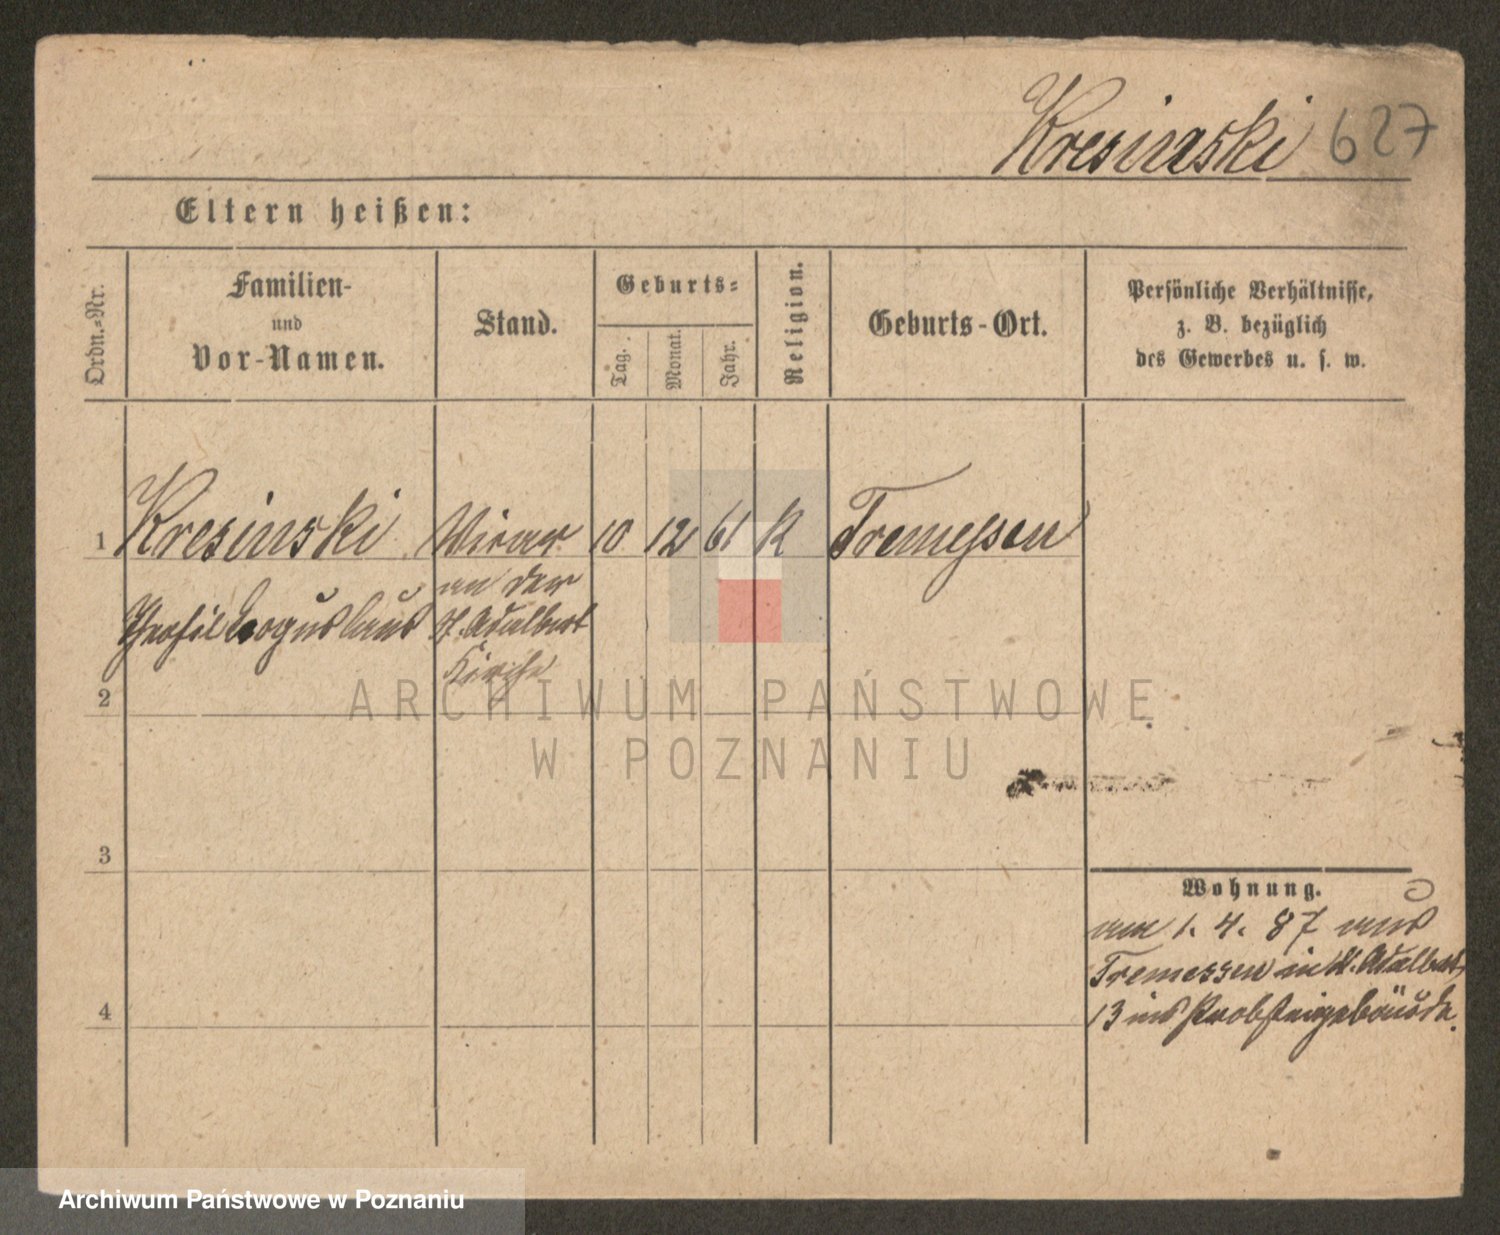 Kresinski 627
Eltern heißen:
Ordn.-Nr.
Familien-
und
Vor-Namen.
Stand.
Geburts-
Tag.
Monat.
Jahr.
Religion.
Geburts-Ort.
Persönliche Verhältnisse,
z. B. bezüglich
des Gewerbes u. s. w.
1 Kresinski Vicar 10 12 61 k Tremessen
an der
Theofil Boguslaus St. Adalbert
Kirche
2
3
4
Wohnung.
am 1. 4. 87 aus
Tremessen in St. Adalbert
13 ins Probsteigebäude.
ARCHIWUM PAŃSTWOWE
W POZNANIU
Archiwum Państwowe w Poznaniu